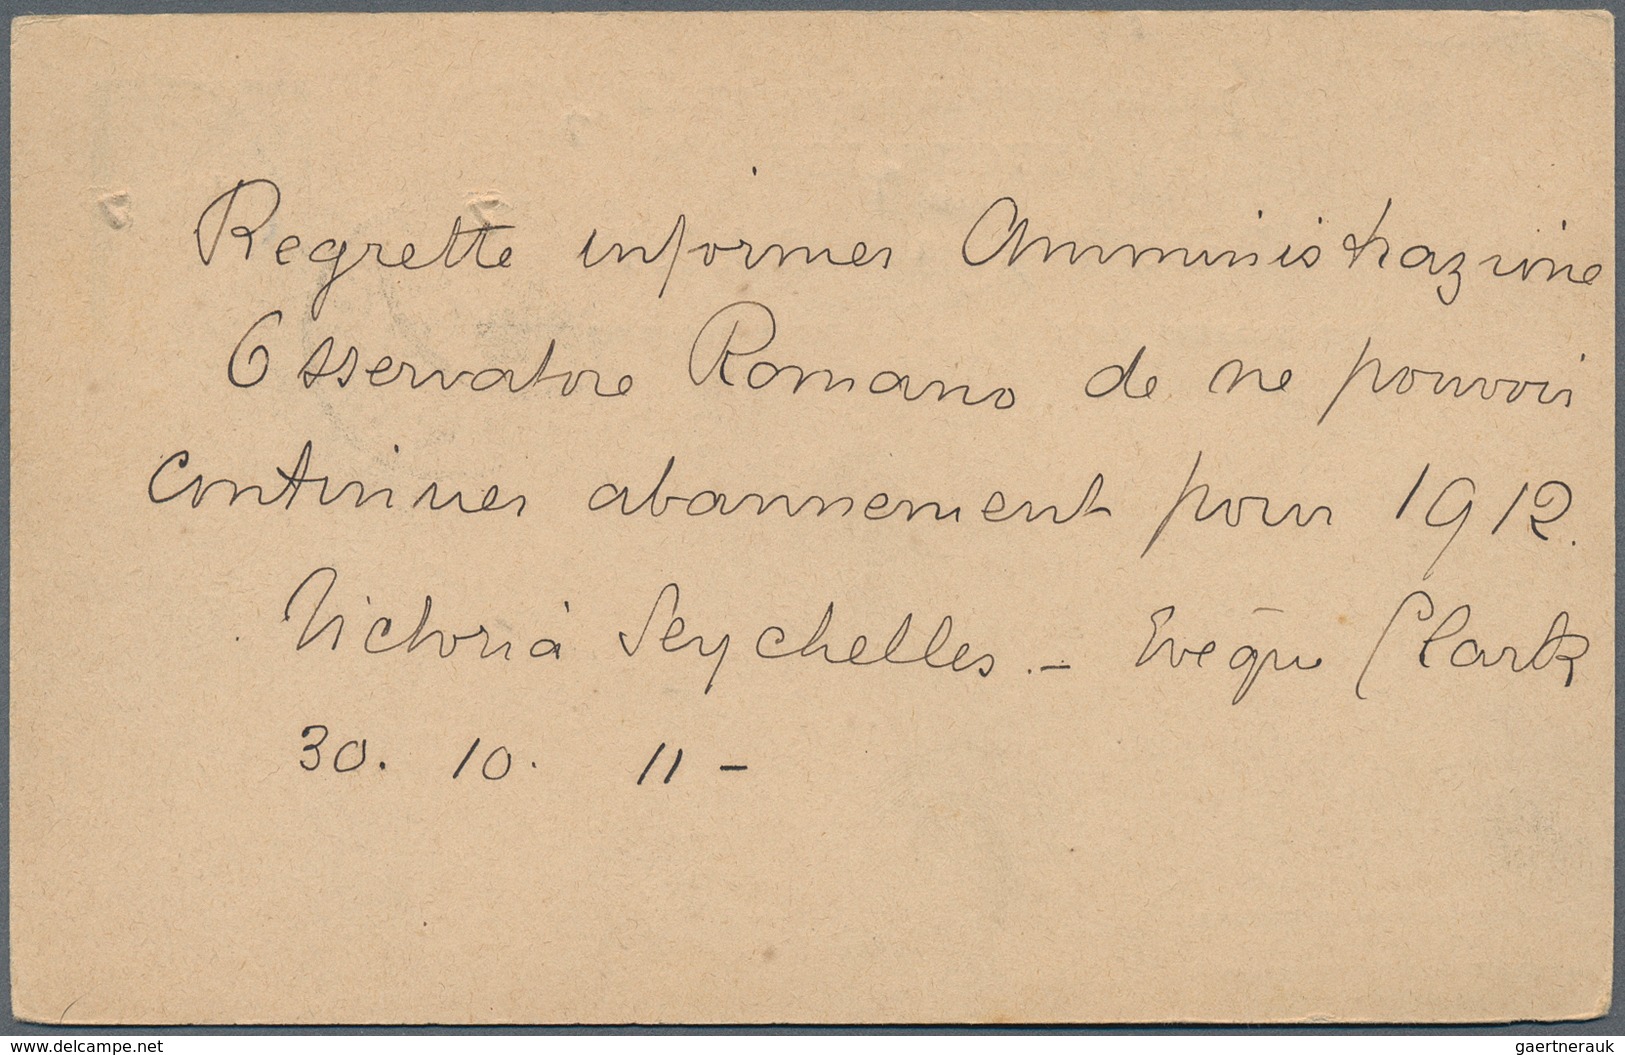 Regrette informer Amministrazione
Osservatore Romano de ne pouvoir
continuer abonnement pour 1912.
Victoria Seychelles. - Evêque Clark
30. 10. 11 -
www.delcampe.net
gaertnerauk